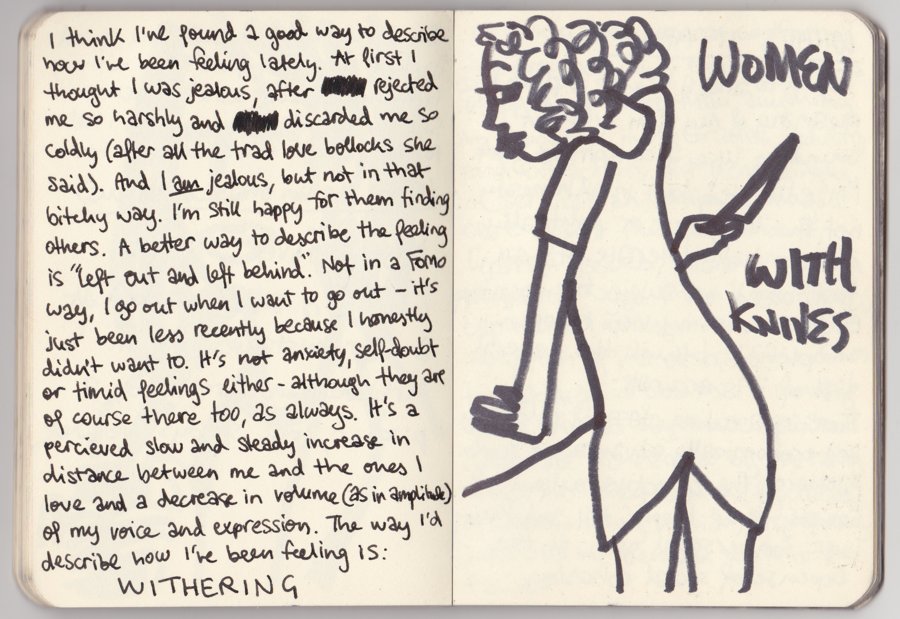 I think I've found a good way to describe
how I've been feeling lately. At first I
thought I was jealous, after rejected
me so harshly and discarded me so
coldly (after all the trad love bollocks she
said). And I am jealous, but not in that
bitchy way. I'm still happy for them finding
others. A better way to describe the feeling
is "left out and left behind". Not in a Fomo
way, I go out when I want to go out - it's
just been less recently because I honestly
didn't want to. It's not anxiety, self-doubt
or timid feelings either - although they are
of course there too, as always. It's a
percieved slow and steady increase in
distance between me and the ones I
love and a decrease in volume (as in amplitude)
of my voice and expression. The way I'd
describe how I've been feeling is:
WITHERING
WOMEN
WITH
KNIVES